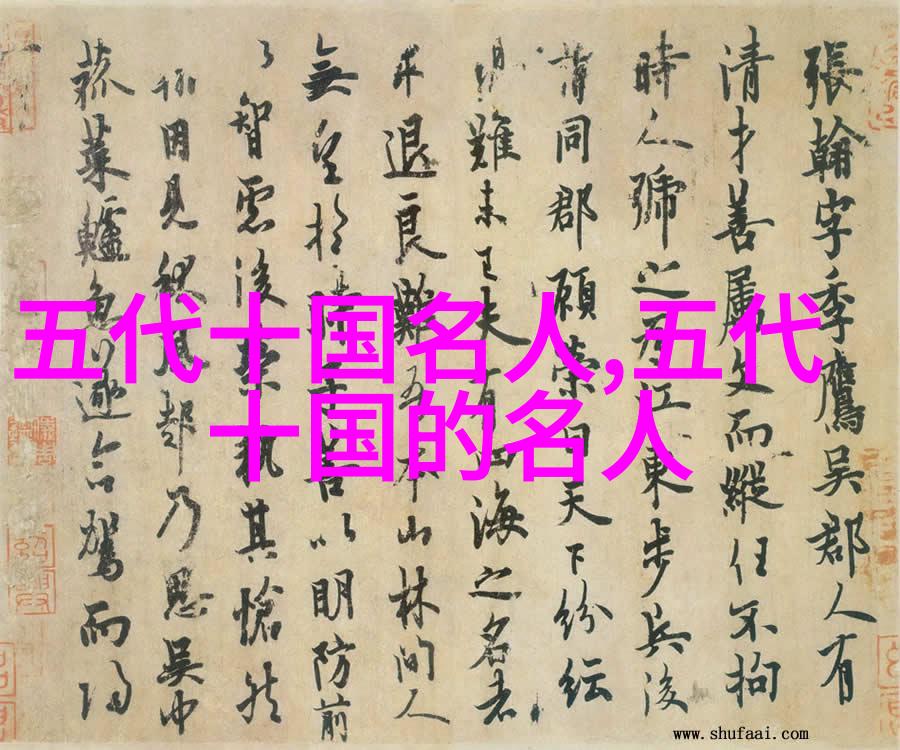 張翰字季鷹吳郡人有
清才善屬文而縱任不拘
時人號之為江東步兵後
謂同郡顧榮曰天下紛紜
禍難未已夫有四海之名者
求退良難吾本山林間人
無望於時子善以明防前
以智慮後榮執其愴然
翰因見秋風起乃思吳中
菰菜鱸魚遂命駕而歸
五代十国名人,五代
十国的名人
www.shufaai.com